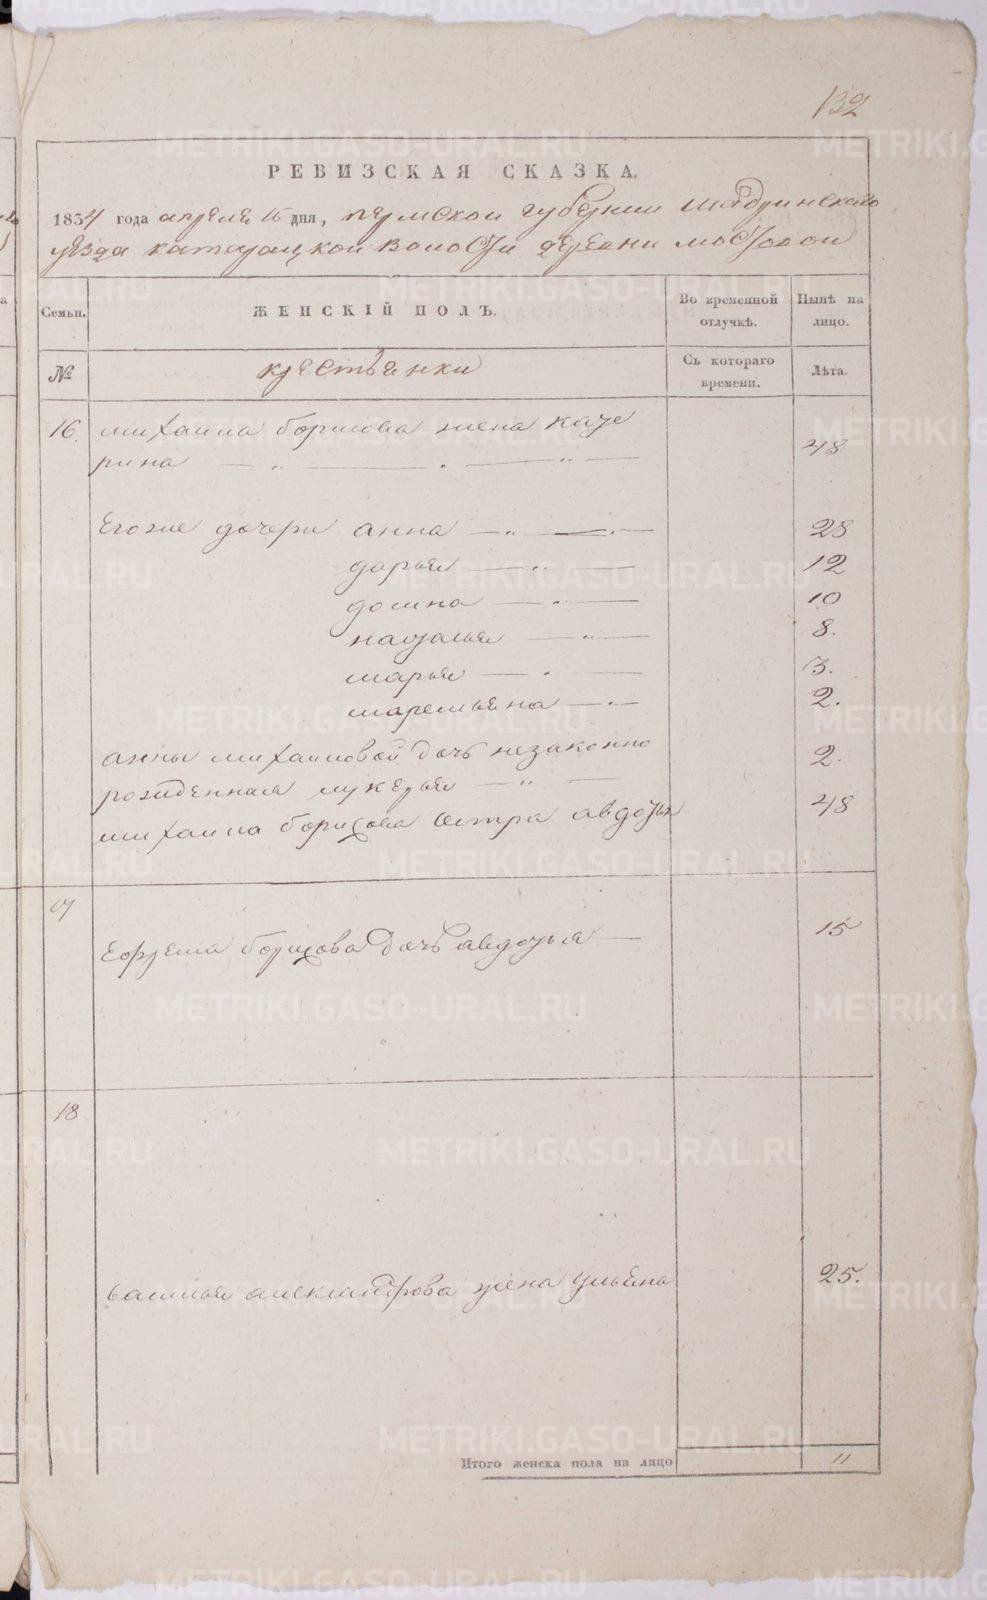 132
РЕВИЗСКАЯ СКАЗКА.
1834 года апреля 15 дня, пермской губернии шадринскаго
уезда катайской волости деревни мостовой
Семьи. ЖЕНСКІЙ ПОЛЪ. Во временной отлучкѣ. Нынѣ на лицо.
№ крестьянки Съ котораго времени. Лѣта.
16. михаила борисова жена кате
рина 48
Егоже дочери анна 28
дарья 12
домна 10
наталья 8.
марья 3.
маремьяна 2.
анны михаиловой дочь незаконно
рожденная лукерья 2.
михаила борисова сестра авдотья 48
17
Ефрема борисова дочь авдотья 15
18
василья александрова жена ульяна 25.
Итого женска пола на лицо 11
METRIKI.GASO-URAL.RU